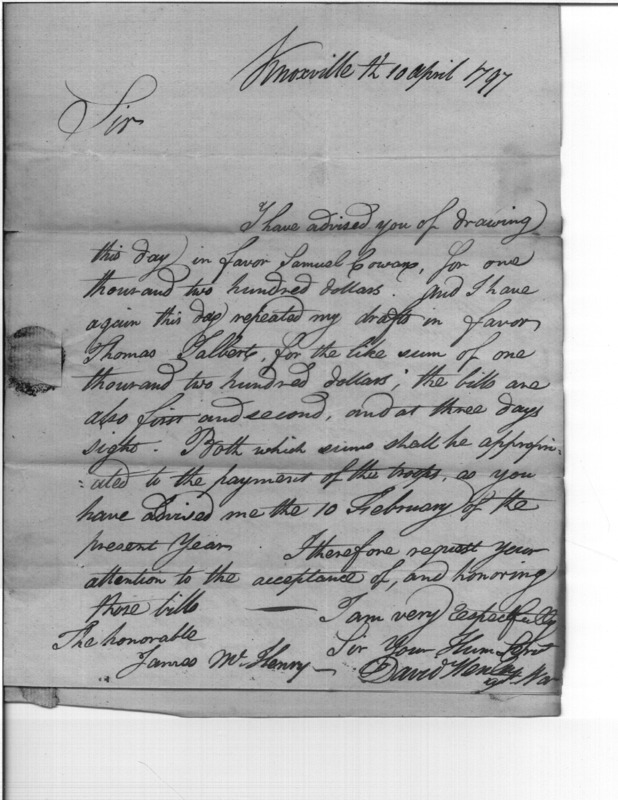 Knoxville th 10 april 1797
Sir
I have advised you of drawing
this day in favor Samuel Cowan, for one
thousand two hundred dollars. And I have
again this day repeated my draft in favor
Thomas Talbert, for the like sum of one
thousand two hundred dollars; the bills are
also first and second, and at three days
sight. Both which sums shall be appropri-
-ated to the payment of the troops, as you
have advised me the 10 February of the
present Year I therefore request your
attention to the acceptance of, and honoring
those bills — I am very respectfully
Sir Your Hum Servt
The honorable
James McHenry — David Henley
agt. War